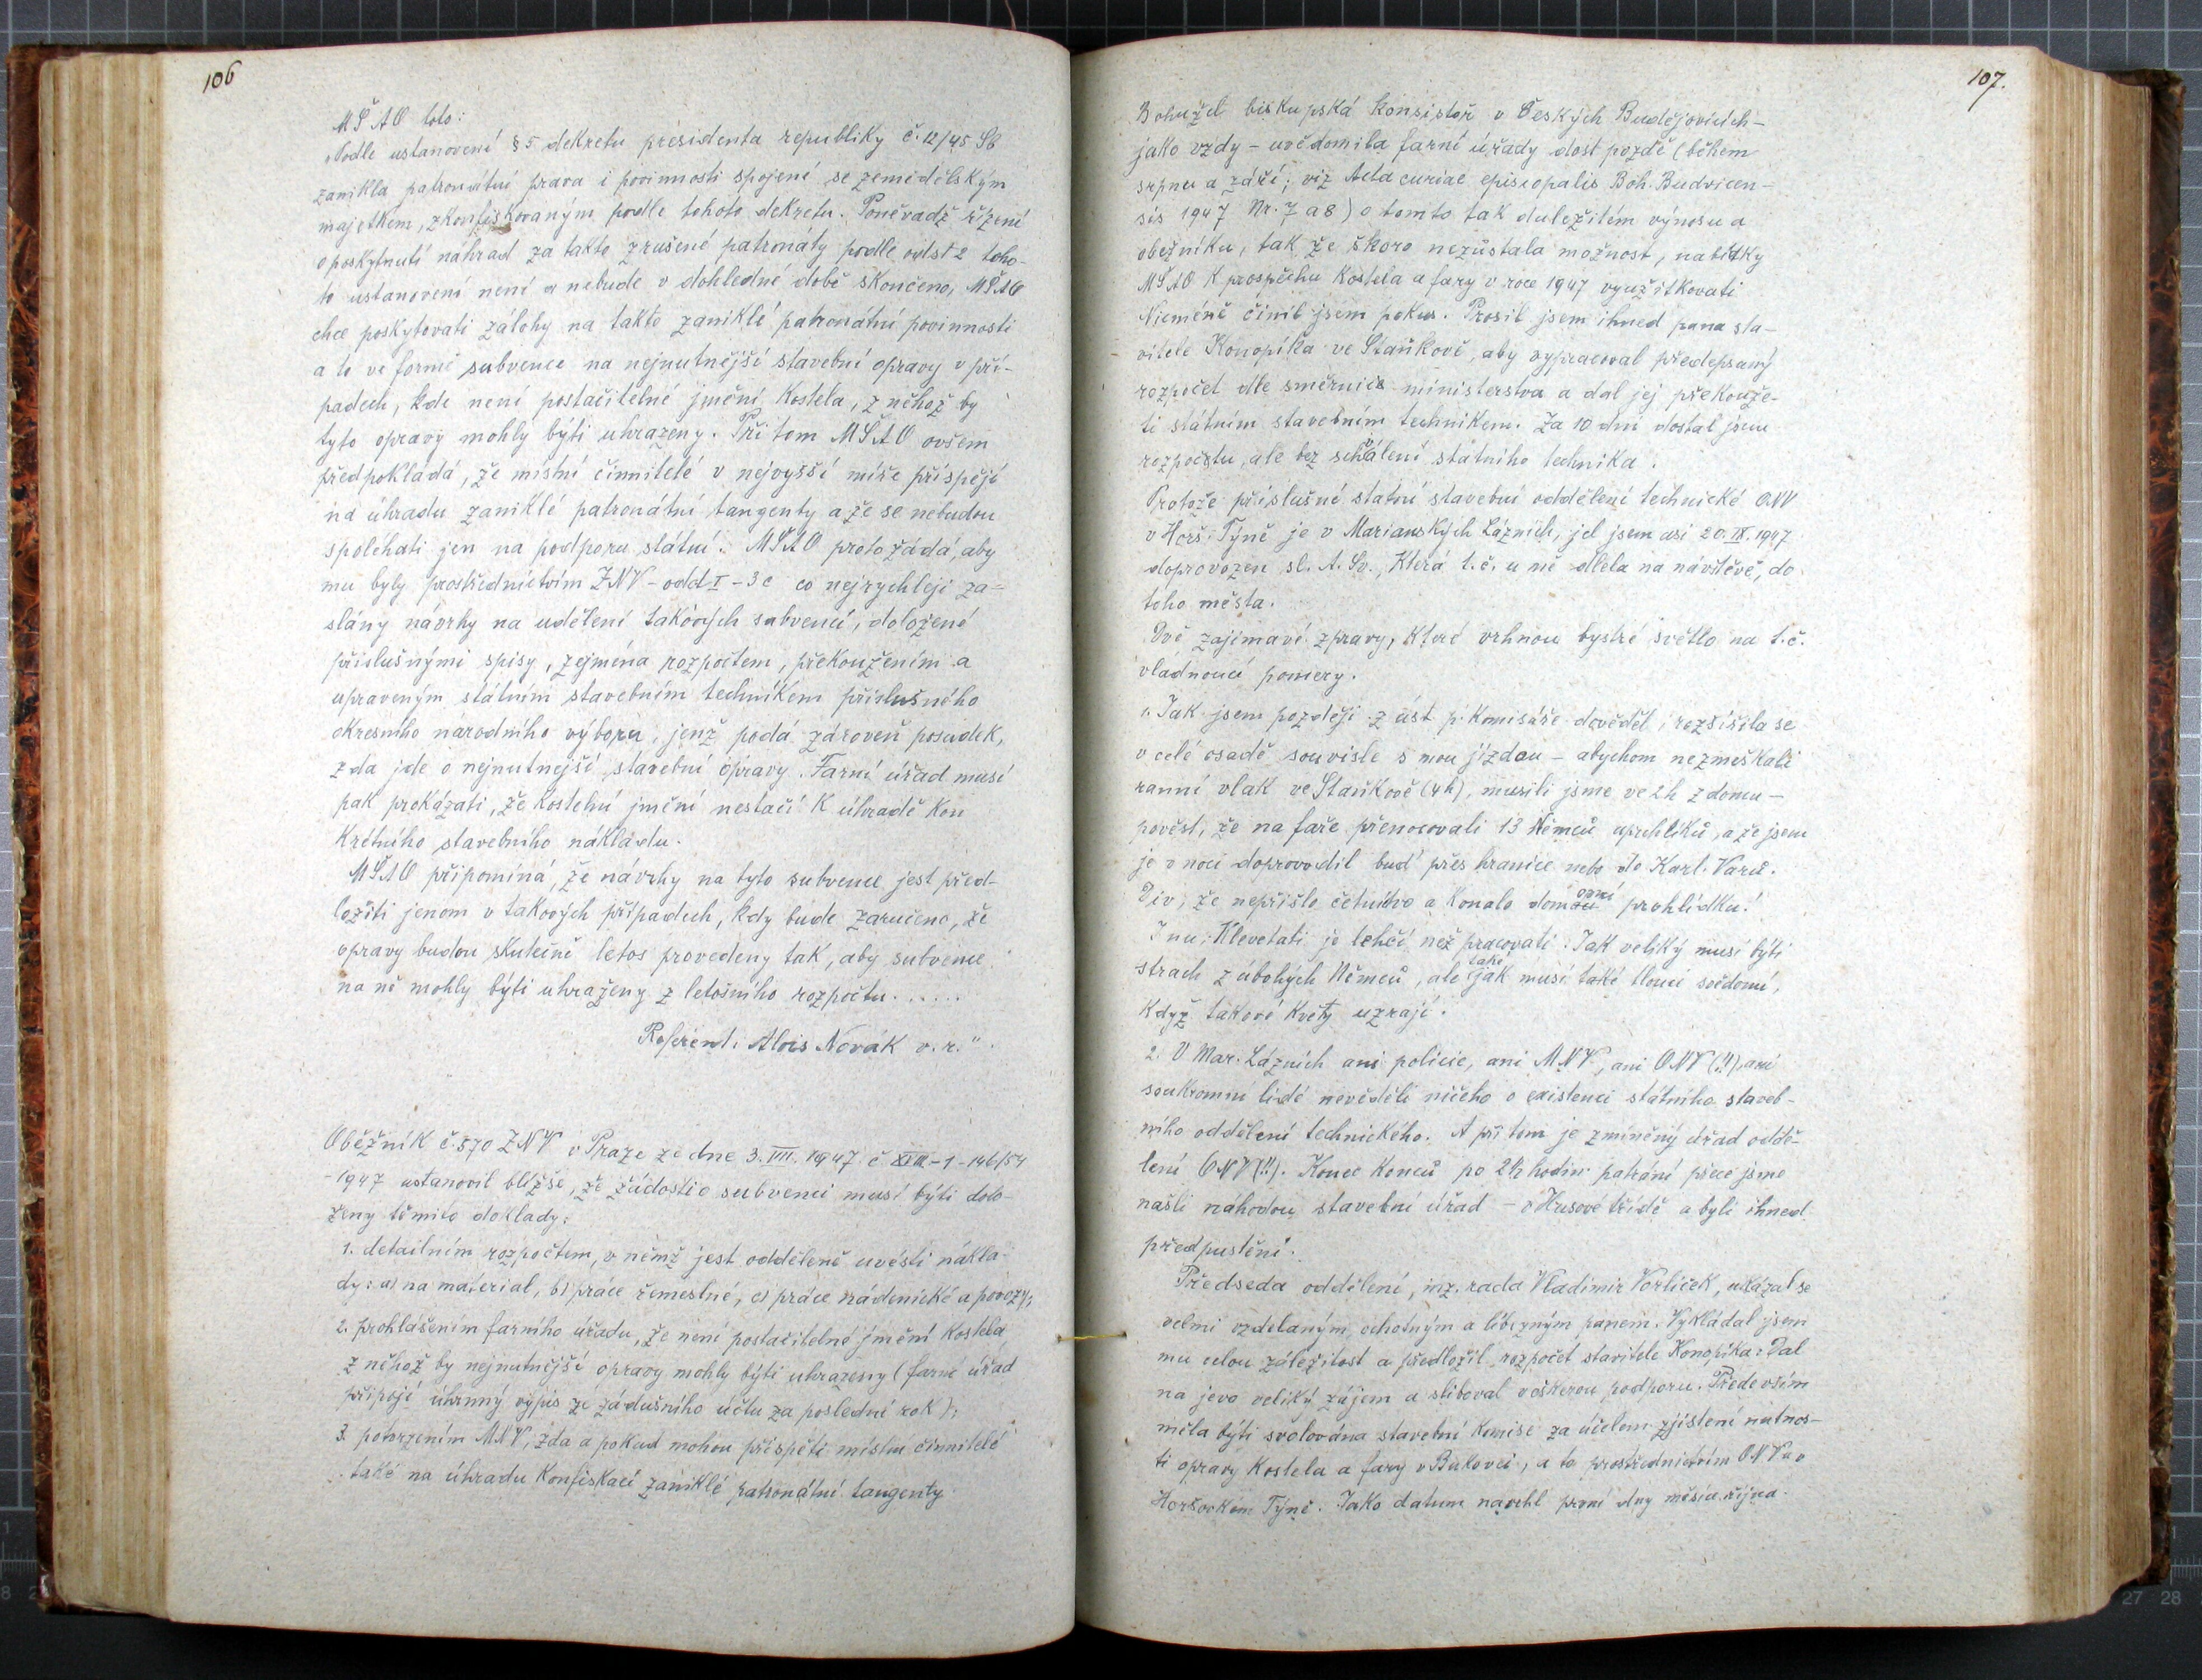 106
MŠAO toto:
„Podle ustanovení § 5 dekretu presidenta republiky č. 12/45 Sb
zanikla patronátní prava i povinnosti spojení se zemědělským
majetkem, zkonfiskovaným podle tohoto dekretu. Poněvadž řízení
o poskytnutí náhrad za takto zrušené patronáty podle odst 2 toho-
to ustanovení není a nebude v dohledné době skončeno, MŠAO
chce poskytovati zálohy na takto zaniklé patronátní povinnosti
a to ve formě subvence na nejnutnější stavební opravy v pří-
padech, kde není postačitelné jmění kostela, z něhož by
tyto opravy mohly býti uhrazeny. Při tom MŠAO ovšem
předpokládá, že místní činnitelé v nejvyšší míře přispějí
na úhradu zaniklé patronátní tangenty a že se nebudou
spoléhati jen na podporu státní. MŠAO proto žádá, aby
mu byly prostřednictvím ZNV - odd I - 3c co nejrychleji za=
slány návrhy na udělení takových subvencí, doložené
příslušnými spisy, zejména rozpočtem, překoužením a
upraveným státním stavebním technikem příslušného
okresního národního výboru, jenž podá zároveň posudek,
zda jde o nejnutnejší stavební opravy. Farní úřad musí
pak prokázati, že kostelní jmění nestačí k úhradě kon
krétního stavebního nákladu.
MŠAO připomíná, že návrhy na tyto subvence jest před-
ložiti jenom v takových případech, kdy bude zaručeno, že
opravy budou skutečně letos provedeny tak, aby subvence
na ně mohly býti uhrazeny z letošního rozpočtu......
Referent: Alois Novák v. r."
Oběžník č. 570 ZNV v Praze ze dne 3. VII. 1947 č XIII-1-146/54
-1947 ustanovil blížše, že žádosti o subvenci musí býti dolo-
ženy těmito doklady:
1. detailním rozpočtem, v němž jest odděleně uvésti nákla-
dy: a) na material, b) práce řemeslné, c) práce nádenické a povozy;
2. prohlášením farního úřadu, že není postačitelné jmění kostela
z něhož by nejnutnější opravy mohly býti uhrazeny (farní úřad
připojí úhrnný výpis ze zádušního účtu za poslední rok);
3. potvrzením MNV, zda a pokud mohou přispěti místní činnitelé
také na úhradu konfiskací zaniklé patronátní tangenty
107.
Bohužel biskupská konsistoř v Českých Budějovicích -
jako vzdy - uvědomila farní úřady dost pozdě (během
srpnu a září; viz Acta curiae episcopalis Boh. Budvicen-
sis 1947 Nr. 7 a 8) o tomto tak duležitém výnosu a
oběžníku, tak že skoro nezůstala možnost, nabídky
MŠAO k prospěchu kostela a fary v roce 1947 využitkovati
Nicméně činil jsem pokus. Prosil jsem ihned pana sta-
vitele Konopíka ve Staňkově, aby vypracoval předepsaný
rozpočet dle směrnic ministerstva a dal jej překouže-
ti státním stavebním technikem. Za 10 dní dostal jsem
rozpočtu, ale bez schválení státního technika.
Protože příslušné statní stavební oddělení technické ONV
v Horš. Týně je v Marianských Lázních, jel jsem asi 20. IX. 1947
doprovozen sl. A. Sv., která t. č. u ně dlela na návštěvě, do
toho města.
Dvě zajímavé zpravy, které vrhnou bystré světlo na t. č.
vladnoucí pomery.
1. Jak jsem později z úst p. komisáře dověděl, rozšířila se
v celé osadě souvisle s mou jízdou - abychom nezmeškali
ranní vlak ve Staňkově (4h), musili jsme ve 2h z domu -
pověst, že na faře přenocovali 13 Němců uprchlíků, a že jsem
je v noci doprovodil buď přes hranice nebo do Karl. Varů.
Div, že nepřišlo četnictvo a konalo domovní prohlídku!
Inu: Klevetati je lehčí než pracovati: Jak veliký musí býti
strach z úbohých Němců, ale také jak musí také tlouci svědomí,
když takové květy uzrají.
2. V Mar. Lázních ani policie, ani MNV, ani ONV (!!), ani
soukromní lidé nevěděli ničeho o existenci státního staveb-
ního oddělení technického. A při tom je zmíněný úřad oddě-
lení ONV (!!). Konec konců po 2½ hodin patrání přece jsme
našli náhodou stavební úřad - v Husově třídě a byli ihned
předpuštěni.
Předseda oddělení, inz. rada Vladimir Vorlíček, ukázal se
velmi vzdelaným, ochotným a líbezným panem. Vykládal jsem
mu celou záležitost a předložil rozpočet stavitele Konopíka. Dal
na jevo veliký zájem a sliboval veškerou podporu. Předevsím
měla býti svolována stavební komise za účelem zjistení nutnos-
ti opravy kostela a fary v Bukovci, a to prostřednictvím ONV a v
Horšovkém Týně. Jako datum navrhl první dny měsíce října.